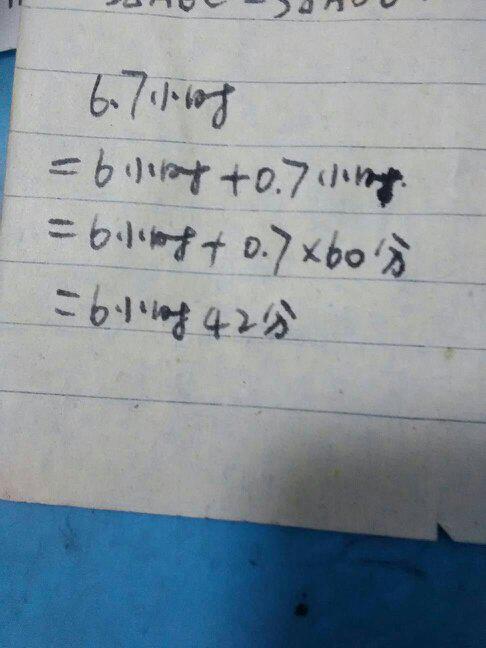 6.7小时
=6小时+0.7小时
=6小时+0.7×60分
=6小时42分